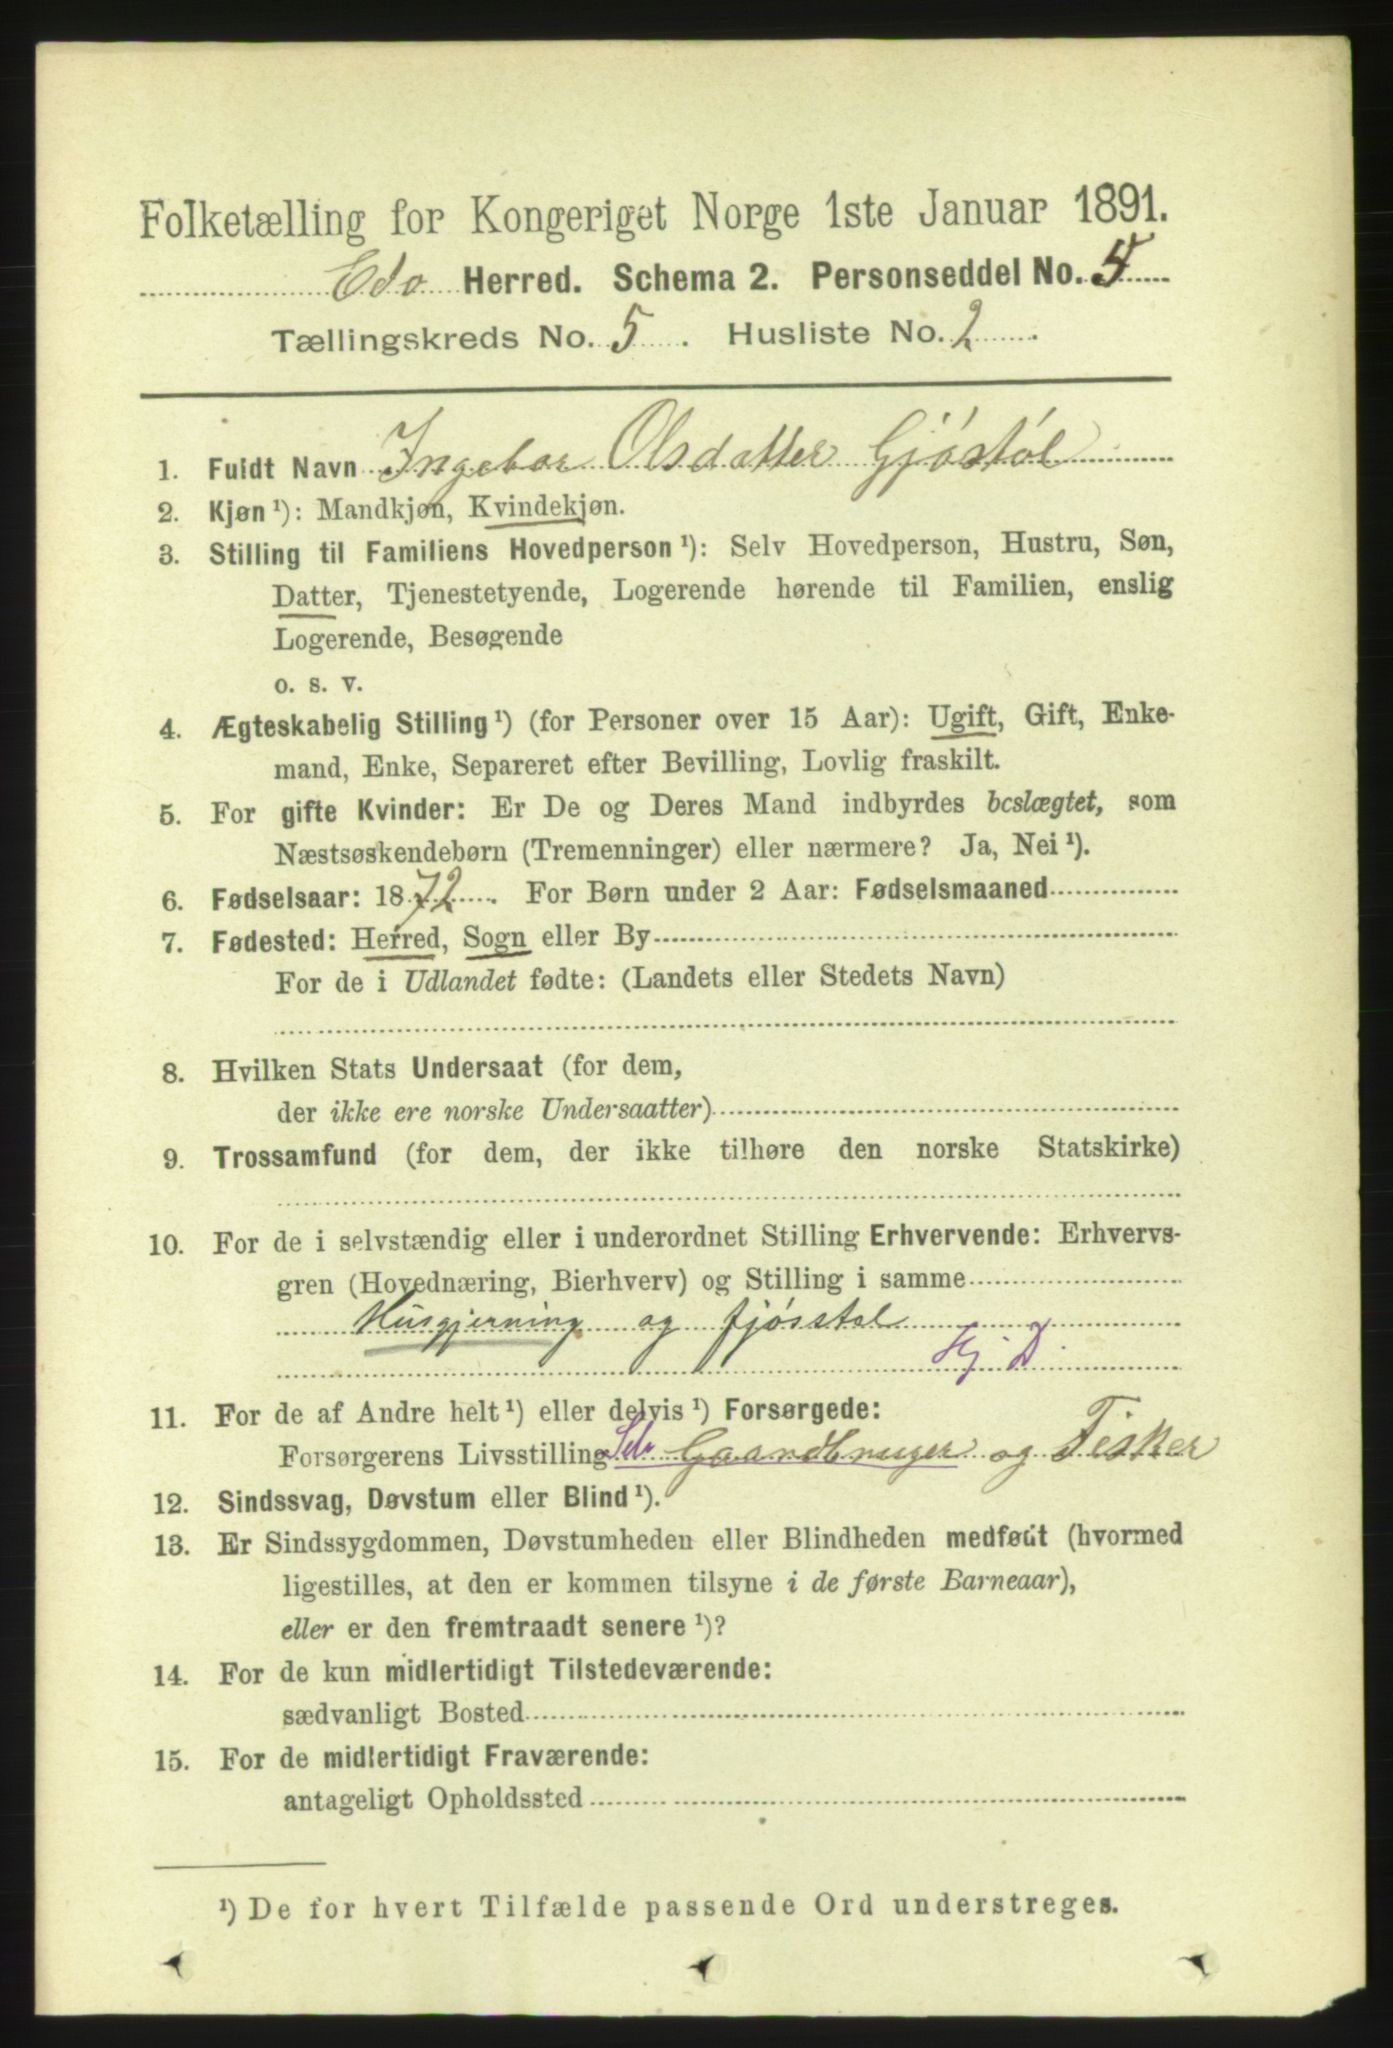 Folketælling for Kongeriget Norge 1ste Januar 1891.
Edø Herred. Schema 2. Personseddel No. 5
Tællingskreds No. 5. Husliste No. 2.
1. Fuldt Navn Ingebor Olsdatter Gjøstøl
2. Kjøn ¹): Mandkjøn, Kvindekjøn.
3. Stilling til Familiens Hovedperson ¹): Selv Hovedperson, Hustru, Søn,
Datter, Tjenestetyende, Logerende hørende til Familien, enslig
Logerende, Besøgende
o. s. v.
4. Ægteskabelig Stilling ¹) (for Personer over 15 Aar): Ugift, Gift, Enke-
mand, Enke, Separeret efter Bevilling, Lovlig fraskilt.
5. For gifte Kvinder: Er De og Deres Mand indbyrdes beslægtet, som
Næstsøskendebørn (Tremenninger) eller nærmere? Ja, Nei ¹).
6. Fødselsaar: 1872. For Børn under 2 Aar: Fødselsmaaned
7. Fødested: Herred, Sogn eller By
For de i Udlandet fødte: (Landets eller Stedets Navn)
8. Hvilken Stats Undersaat (for dem,
der ikke ere norske Undersaatter)
9. Trossamfund (for dem, der ikke tilhøre den norske Statskirke)
10. For de i selvstændig eller i underordnet Stilling Erhvervende: Erhvervs-
gren (Hovednæring, Bierhverv) og Stilling i samme
Husgjerning og fjøsstel
Hj. D.
11. For de af Andre helt ¹) eller delvis ¹) Forsørgede:
Forsørgerens Livsstilling Selv Gaardbruger og Fisker
12. Sindssvag, Døvstum eller Blind ¹).
13. Er Sindssygdommen, Døvstumheden eller Blindheden medfødt (hvormed
ligestilles, at den er kommen tilsyne i de første Barneaar),
eller er den fremtraadt senere ¹)?
14. For de kun midlertidigt Tilstedeværende:
sædvanligt Bosted
15. For de midlertidigt Fraværende:
antageligt Opholdssted
¹) De for hvert Tilfælde passende Ord understreges.